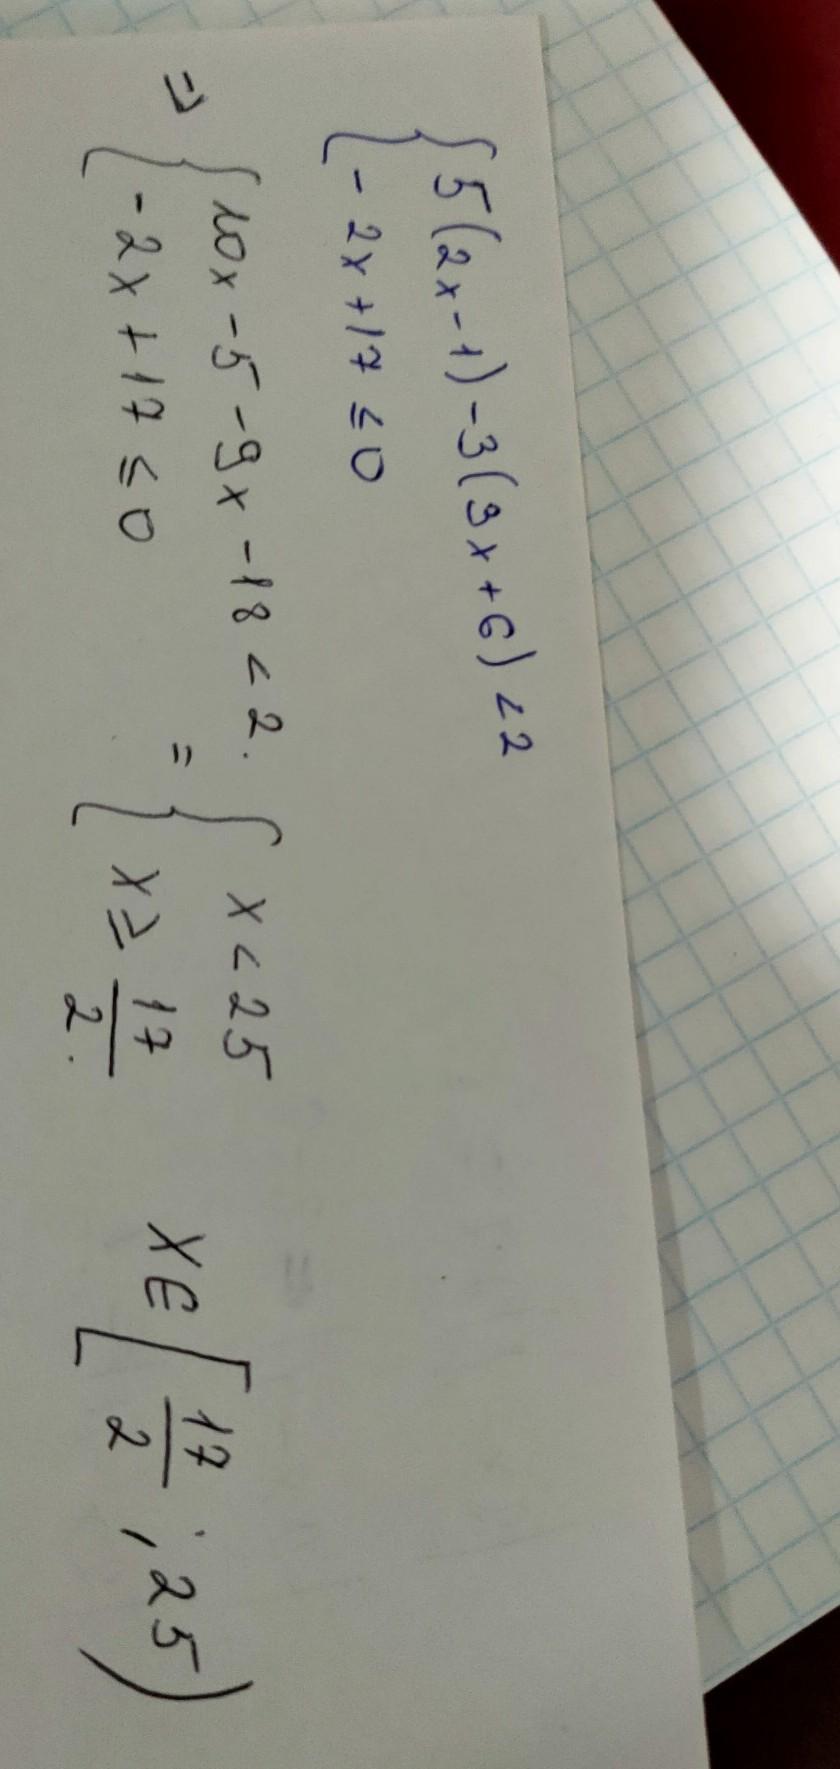 { 5(2x-1)-3(3x+6)<2
-2x+17≤0
=> { 10x-5-9x-18<2.
-2x+17≤0
= { x<25
x≥17/2.
x∈[17/2;25)